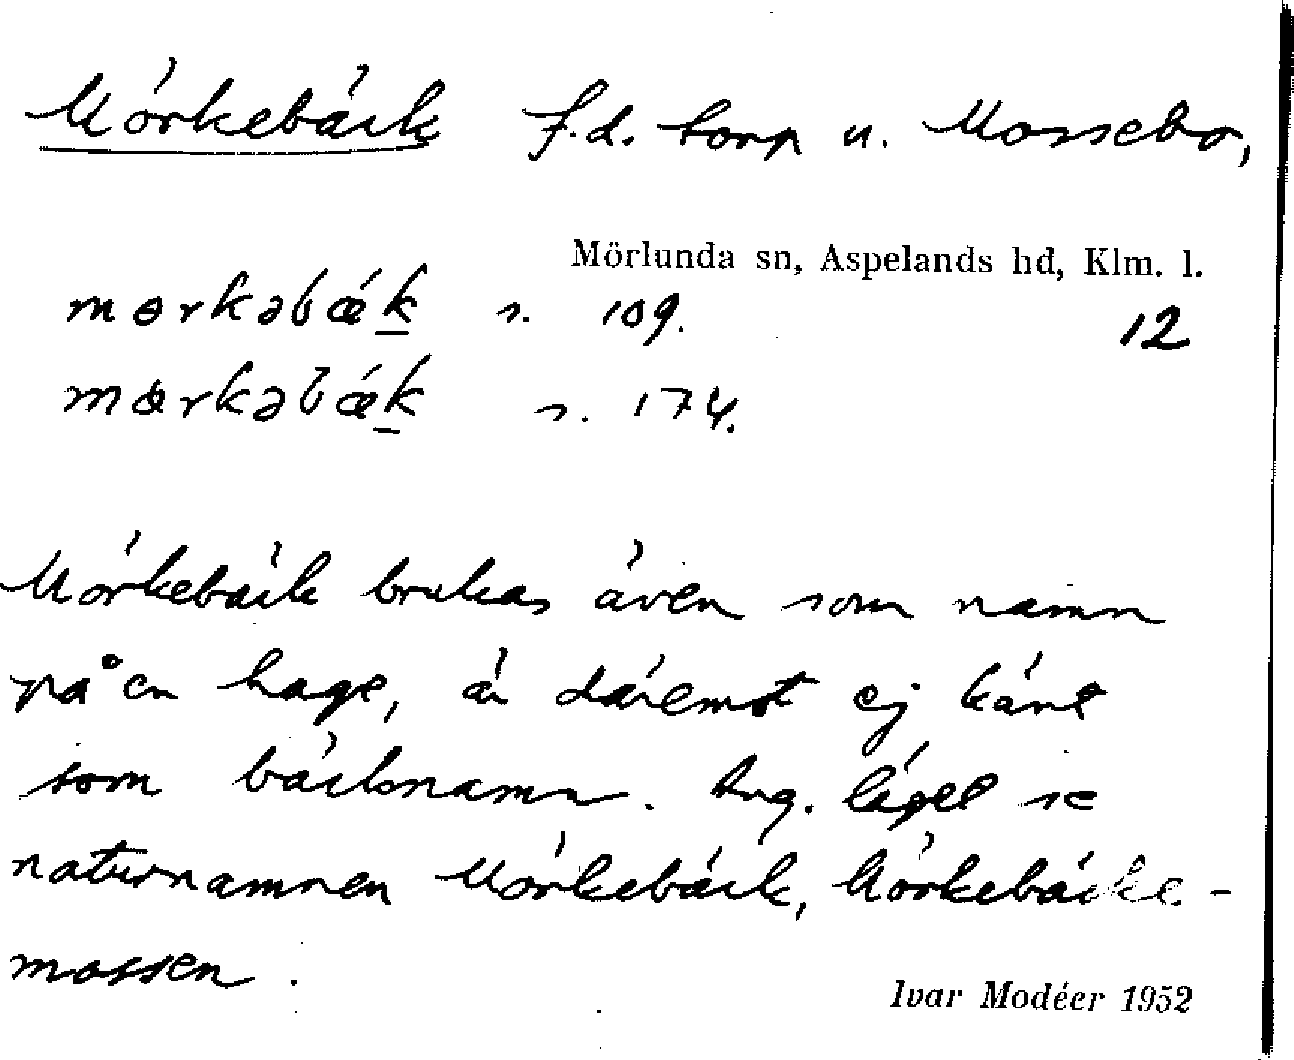 Mörkebäck f.d. torp u. Mossebo,
Mörlunda sn, Aspelands hd, Klm. l.
mɵrkəbǽk s. 109. 12
mœrkəbǽk s. 174.
Mörkebäck brukas även som namn
på en hage, är däremot ej känt
som bäcknamn. Ang. läget se
naturnamnen Mörkebäck, Mörkebäcke-
mossen.
Ivar Modéer 1952